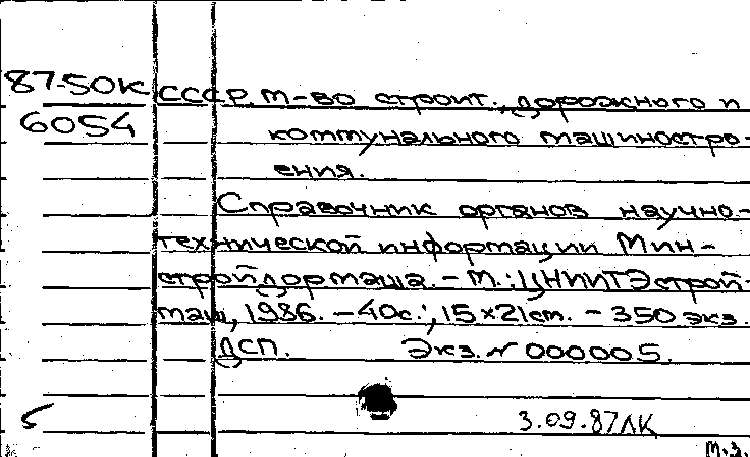 87-50К СССР. М-во строит., дорожного и
6054 коммунального машиностро-
ения.
Справочник органов научно-
технической информации Мин-
стройдормаша. - М.: ЦНИИТЭстрой-
маш, 1986. - 40с.; 15×21см. - 350 экз.
ДСП. Экз. № 000005.
5 3.09.87ЛК
М.З.